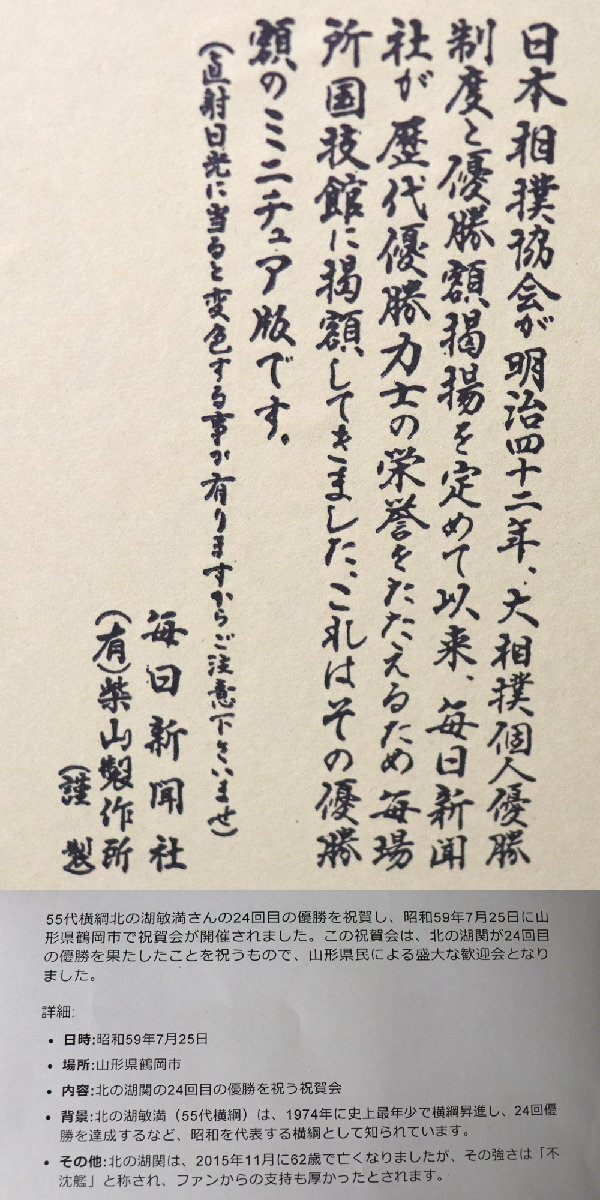 日本相撲協会が明治四十二年、大相撲個人優勝
制度と優勝額掲揚を定めて以来、毎日新聞
社が歴代優勝力士の栄誉をたたえるため毎場
所国技館に掲額してきました、これはその優勝
額のミニチュア版です。
(直射日光に当ると変色する事が有りますからご注意下さいませ)
毎日新聞社
(有)柴山製作所
(謹製)
55代横綱北の湖敏満さんの24回目の優勝を祝賀し、昭和59年7月25日に山
形県鶴岡市で祝賀会が開催されました。この祝賀会は、北の湖関が24回目
の優勝を果たしたことを祝うもので、山形県民による盛大な歓迎会となり
ました。
詳細:
• 日時:昭和59年7月25日
• 場所:山形県鶴岡市
• 内容:北の湖関の24回目の優勝を祝う祝賀会
• 背景:北の湖敏満(55代横綱)は、1974年に史上最年少で横綱昇進し、24回優
勝を達成するなど、昭和を代表する横綱として知られています。
• その他:北の湖関は、2015年11月に62歳で亡くなりましたが、その強さは「不
沈艦」と称され、ファンからの支持も厚かったとされます。